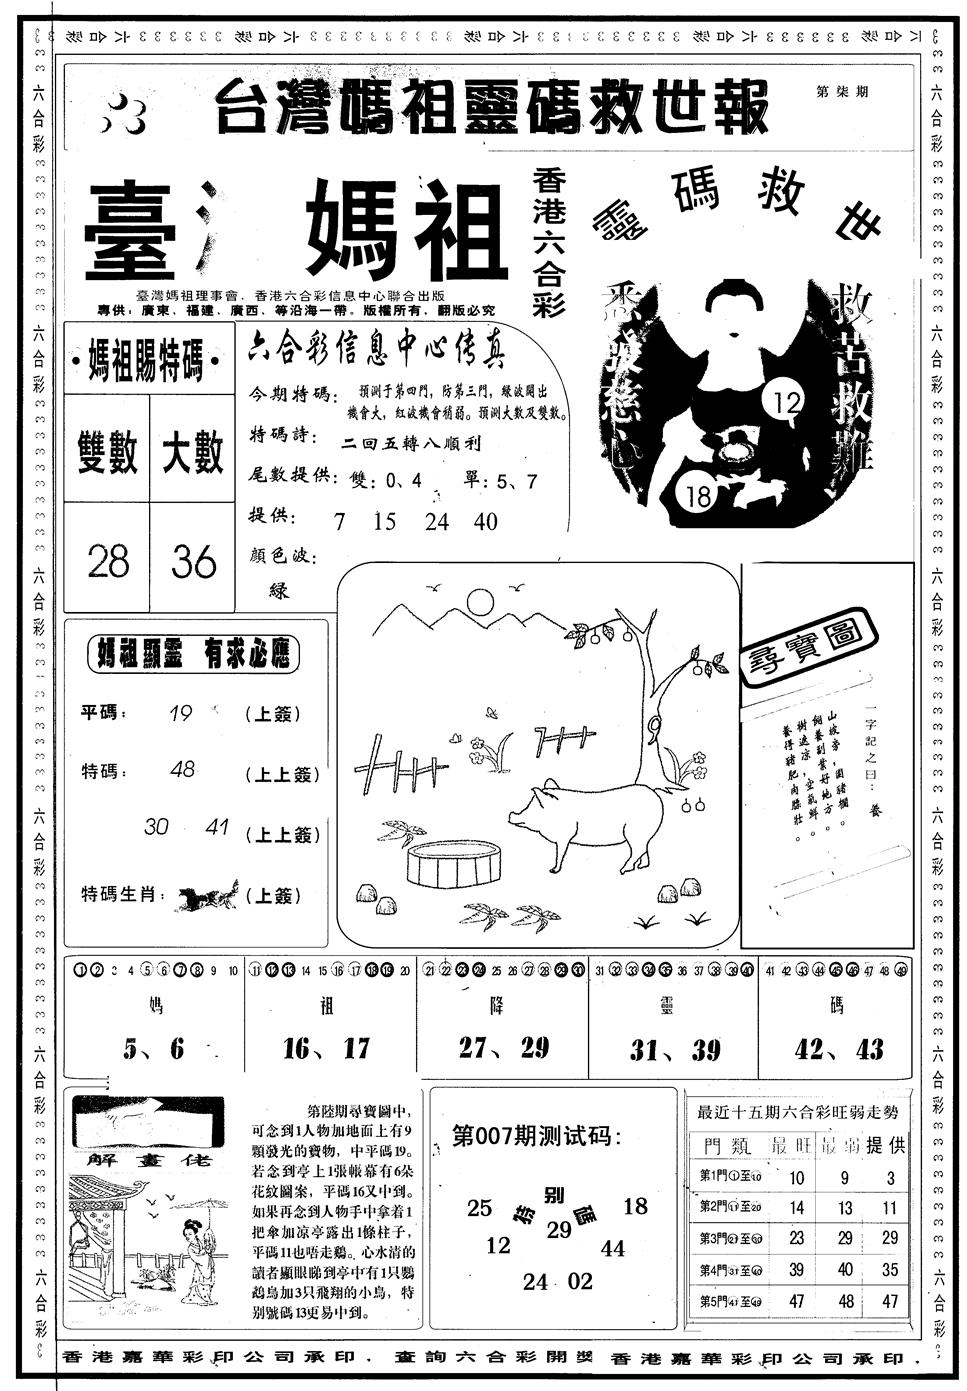 台灣媽祖靈碼救世報
第柒期
臺 媽祖
香港六合彩
靈碼救世
臺灣媽祖理事會．香港六合彩信息中心聯合出版
專供：廣東、福建、廣西、等沿海一帶。版權所有，翻版必究
救苦救難
慈心
12
18
·媽祖賜特碼·
雙數 大數
28 36
六合彩信息中心传真
今期特碼： 預測于第四門，防第三門，綠波開出
機會大，紅波機會稍弱。預測大數及雙數。
特碼詩： 二回五轉八順利
尾數提供： 雙：0、4 單：5、7
提供： 7 15 24 40
顔色波：
緑
媽祖顯靈 有求必應
平碼： 19 （上簽）
特碼： 48 （上上簽）
30 41 （上上簽）
特碼生肖： （上簽）
尋寶圖
一字記之曰：養
山坡旁，圍豬欄。
飼養副業好地方。
樹遮凉，空氣鮮，
養得豬肥肉膘壯。
1 2 3 4 5 6 7 8 9 10
11 12 13 14 15 16 17 18 19 20
21 22 23 24 25 26 27 28 29 30
31 32 33 34 35 36 37 38 39 40
41 42 43 44 45 46 47 48 49
媽 祖 降 靈 碼
5、6 16、17 27、29 31、39 42、43
解畫佬
第陸期尋寶圖中，
可念到1人物加地面上有9
顆發光的寶物，中平碼19。
若念到亭上1張帳幕有6朵
花紋圖案，平碼16又中到。
如果再念到人物手中拿着1
把傘加凉亭露出1條柱子，
平碼11也唔走鷄。心水清的
讀者顯眼睇到亭中有1只鸚
鵡鳥加3只飛翔的小鳥，特
别號碼13更易中到。
第007期测试码：
特别碼
25 18
29
12 44
24 02
最近十五期六合彩旺弱走勢
門類 最旺 最弱 提供
第1門①至⑩ 10 9 3
第2門⑪至⑳ 14 13 11
第3門㉑至㉚ 23 29 29
第4門㉛至㊵ 39 40 35
第5門㊶至㊾ 47 48 47
香港嘉華彩印公司承印．查詢六合彩開獎 香港嘉華彩印公司承印．